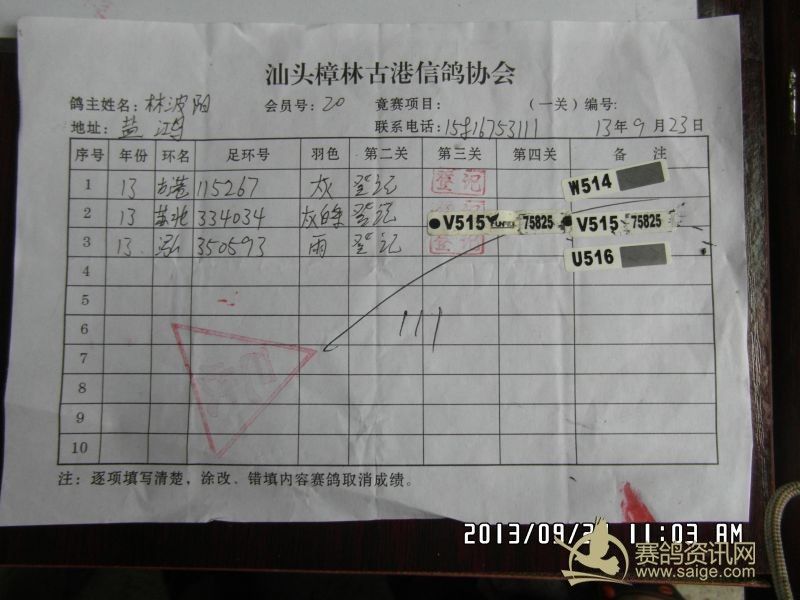 汕头樟林古港信鸽协会
鸽主姓名：林波阳 会员号：20 竟赛项目： （一关）编号：
地址：盐鸿 联系电话： 13年9月23日
序号 年份 环名 足环号 羽色 第二关 第三关 第四关 备 注
1 13 古港 115267 灰 登记 登记 W514
2 13 苏北 334034 登记 V515 75825 V515 75825
3 13 350593 雨 登记 登记 U516
4
5
6
7
8
9
10
注：逐项填写清楚，涂改、错填内容赛鸽取消成绩。
11:03 AM
赛鸽资讯网
www.saige.com